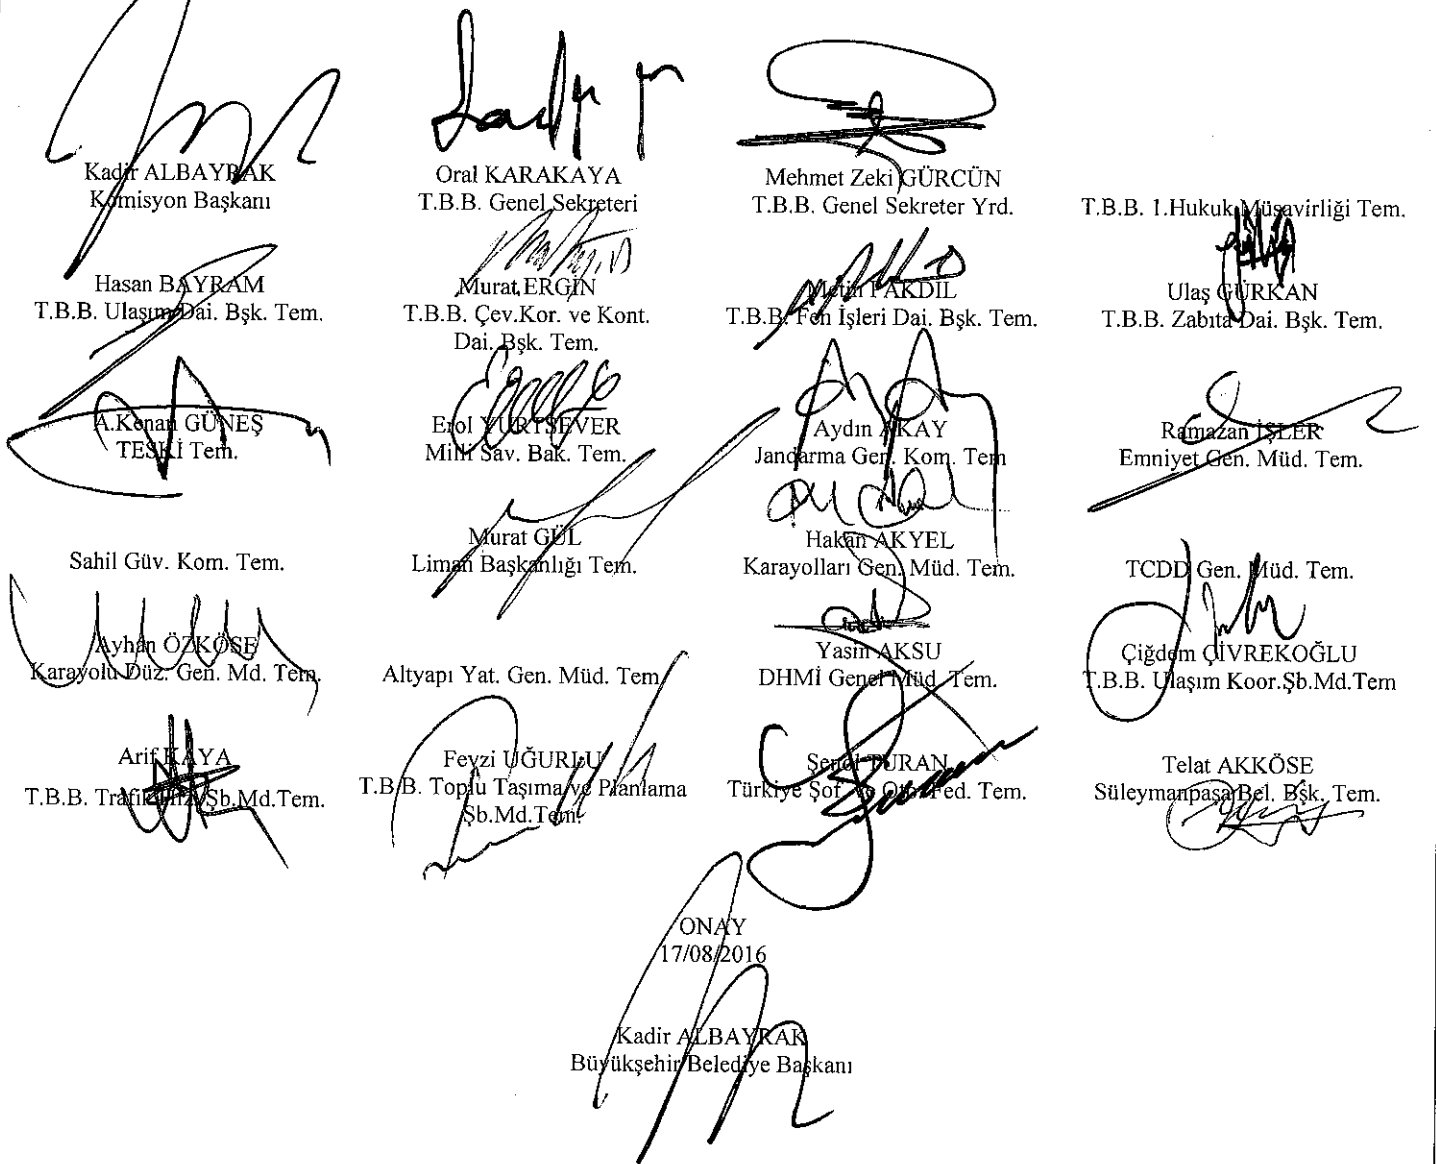 Kadir ALBAYRAK
Komisyon Başkanı
Oral KARAKAYA
T.B.B. Genel Sekreteri
Mehmet Zeki GÜRCÜN
T.B.B. Genel Sekreter Yrd.
T.B.B. 1.Hukuk Müşavirliği Tem.
Hasan BAYRAM
T.B.B. Ulaşım Dai. Bşk. Tem.
Murat ERGİN
T.B.B. Çev.Kor. ve Kont.
Dai. Bşk. Tem.
Metin PAKDİL
T.B.B. Fen İşleri Dai. Bşk. Tem.
Ulaş GÜRKAN
T.B.B. Zabıta Dai. Bşk. Tem.
A.Kenan GÜNEŞ
TESKİ Tem.
Erol YURTSEVER
Milli Sav. Bak. Tem.
Aydın AKAY
Jandarma Gen. Kom. Tem
Ramazan İŞLER
Emniyet Gen. Müd. Tem.
Sahil Güv. Kom. Tem.
Murat GÜL
Liman Başkanlığı Tem.
Hakan AKYEL
Karayolları Gen. Müd. Tem.
TCDD Gen. Müd. Tem.
Ayhan ÖZKÖSE
Karayolu Düz. Gen. Md. Tem.
Altyapı Yat. Gen. Müd. Tem.
Yasin AKSU
DHMİ Genel Müd. Tem.
Çiğdem ÇİVREKOĞLU
T.B.B. Ulaşım Koor.Şb.Md.Tem
Arif KAYA
T.B.B. Trafik Hiz. Şb.Md.Tem.
Fevzi UĞURLU
T.B.B. Toplu Taşıma ve Planlama
Şb.Md.Tem.
Şenol TURAN
Türkiye Şof. ve Oto. Fed. Tem.
Telat AKKÖSE
Süleymanpaşa Bel. Bşk. Tem.
ONAY
17/08/2016
Kadir ALBAYRAK
Büyükşehir Belediye Başkanı